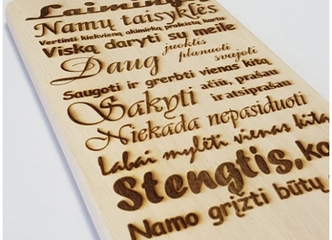 Namų taisyklės
Vertinti kiekvieną akimirką, praleistą kartu
Viską daryti su meile
Daug juoktis planuoti svajoti
Saugoti ir gerbti vienas kitą
Sakyti ačiū, prašau ir atsiprašau
Niekada nepasiduoti
Labai mylėti vienas kitą
Stengtis,
Namo grįžti būtų